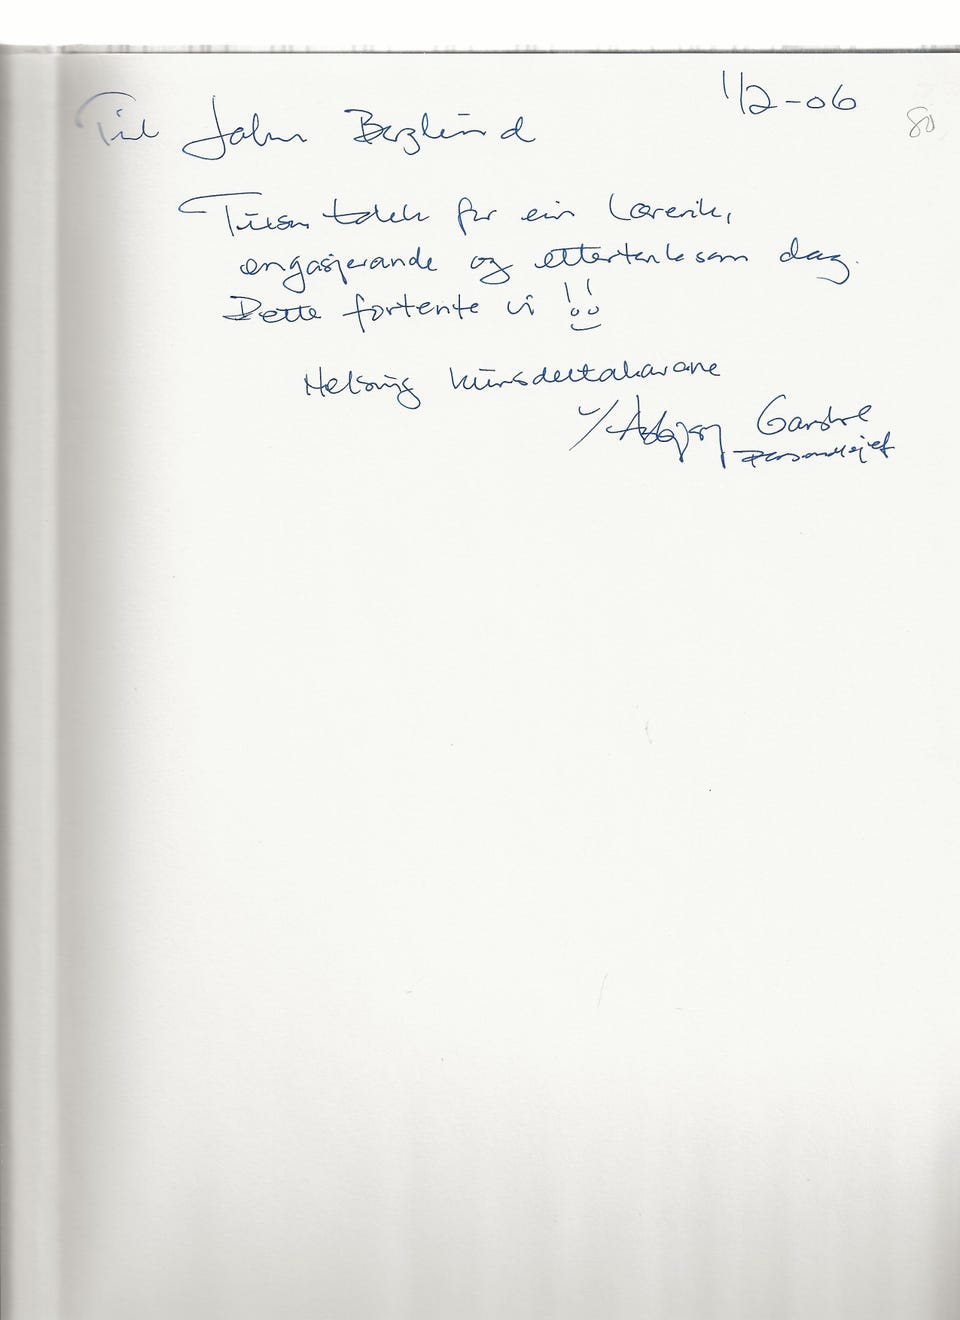 1/2-06
80
Til John Berglund
Tusen takk for ein lærerik,
engasjerande og ettertenksom dag.
Dette fortente vi !!
Helsing kursdeltakarane
v/ Asbjørn
Personalsjef